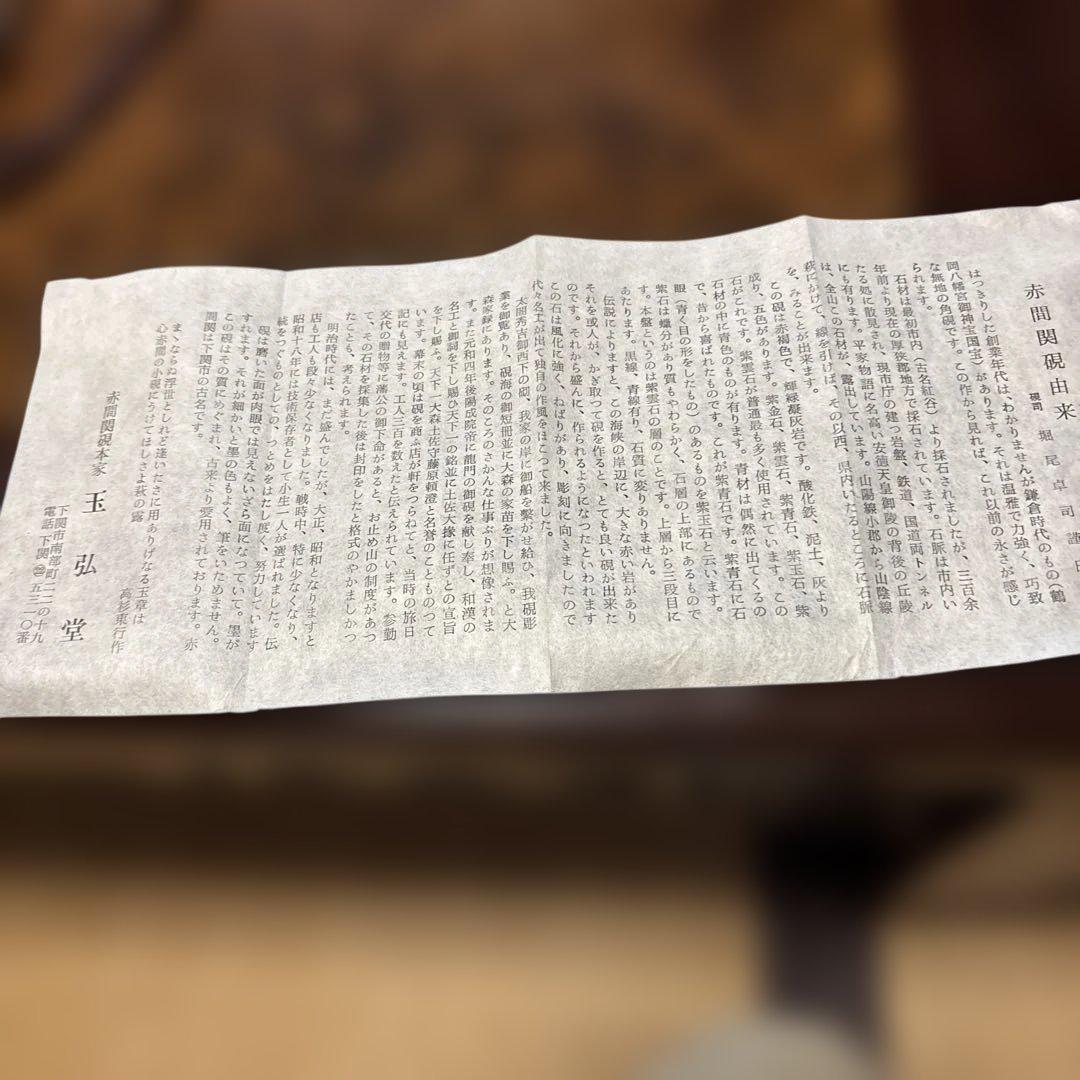 赤間関硯由来
硯司 堀尾卓司謹白
はっきりした創業年代は、わかりませんが鎌倉時代のもの(鶴
岡八幡宮御神宝国宝)があります。それは温雅で力強く、巧致
な無地の角硯です。この作から見れば、これ以前の永さが感じ
られます。
石材は最初市内(古名紅谷)より採石されましたが、三百余
年前より現在の厚狭郡地方で採石されています。石脈は市内い
たる処に散見され、現市庁の建つ岩盤、鉄道、国道両トンネル
にも有ります。平家物語に名高い安徳天皇御陵の背後の丘陵
は、全山この石材が、露出しています。山陽線小郡から山陰線
萩にかけて、線を引けば、その以西、県内いたるところに石脈
を、みることが出来ます。
この硯は赤褐色で、輝緑凝灰岩です。酸化鉄、泥土、灰より
成り、五色があります。紫金石、紫雲石、紫青石、紫玉石、紫
石がこれです。紫雲石が普通最も多く使用されています。この
石材の中に青色のものが有ります。青材は偶然に出てくるの
で、昔から喜ばれたものです。これが紫青石です。紫青石に石
眼(青く目の形をしたもの)のあるものを紫玉石と云います。
紫石は蠟分があり質もやわらかく、石層の上部にあるもので
す。本盤というのは紫雲石の層のことです。上層から三段目に
あたります。黒線、青線有り、石質に変りありません。
伝説によりますと、この海峡の岸辺に、大きな赤い岩があり
それを或人が、かぎ取って硯を作ると、とても良い硯が出来た
のです。それから盛んに、作られるようになつたといわれます
この石は風化に強く、ねばりがあり、彫刻に向きましたので
代々名工が出て独自の作風をほこつて来ました。
太閤秀吉御西下の砌、我家の岸に御船を繫がせ給ひ、我硯彫
業を御覧あり、硯海の御短冊並に大森の家苗を下し賜ふ。と大
森家録にあります。そのころのさかんな仕事ぶりが想像されま
す。また元和四年後陽成院帝に龍門の御硯を献し奉し、和漢の
名工と御詞を下し賜ひ天下一の銘並に土佐大掾に任ずとの宣旨
を下し賜ふ。天下一大森土佐守藤原頼澄と名誉のこともつて
います。幕末の頃は硯を商ふ店が軒をつらねてと、当時の旅日
記にも見えます。工人三百を数えたと伝えられています。参勤
交代の贈物等に藩公の御下命があると、お止め山の制度があつ
て、その石材を採集した後は封印をしたと格式のやかましかつ
たことも、考えられます。
明治時代には、まだ盛んでしたが、大正、昭和となりますと
店も工人も段々少なくなりました。戦時中、特に少なくなり、
昭和十八年には技術保存者として小生一人が選ばれました。伝
統をつぐものとしての、つとめをはたし度く、努力しています
硯は磨いた面が肉眼では見えないざら面になつていて、墨が
すれます。それが細かいと墨の色もよく、筆をいためません。
この硯はその質にめぐまれ、古来より愛用されております。赤
間関は下関市の古名です。
まゝならぬ浮世としれど逢いたさに用ありげなる玉章は
心赤間の小硯にうけてほしさよ萩の露
高杉東行作
赤間関硯本家 玉弘堂
下関市南部町二二の十九
電話下関 五三一〇番